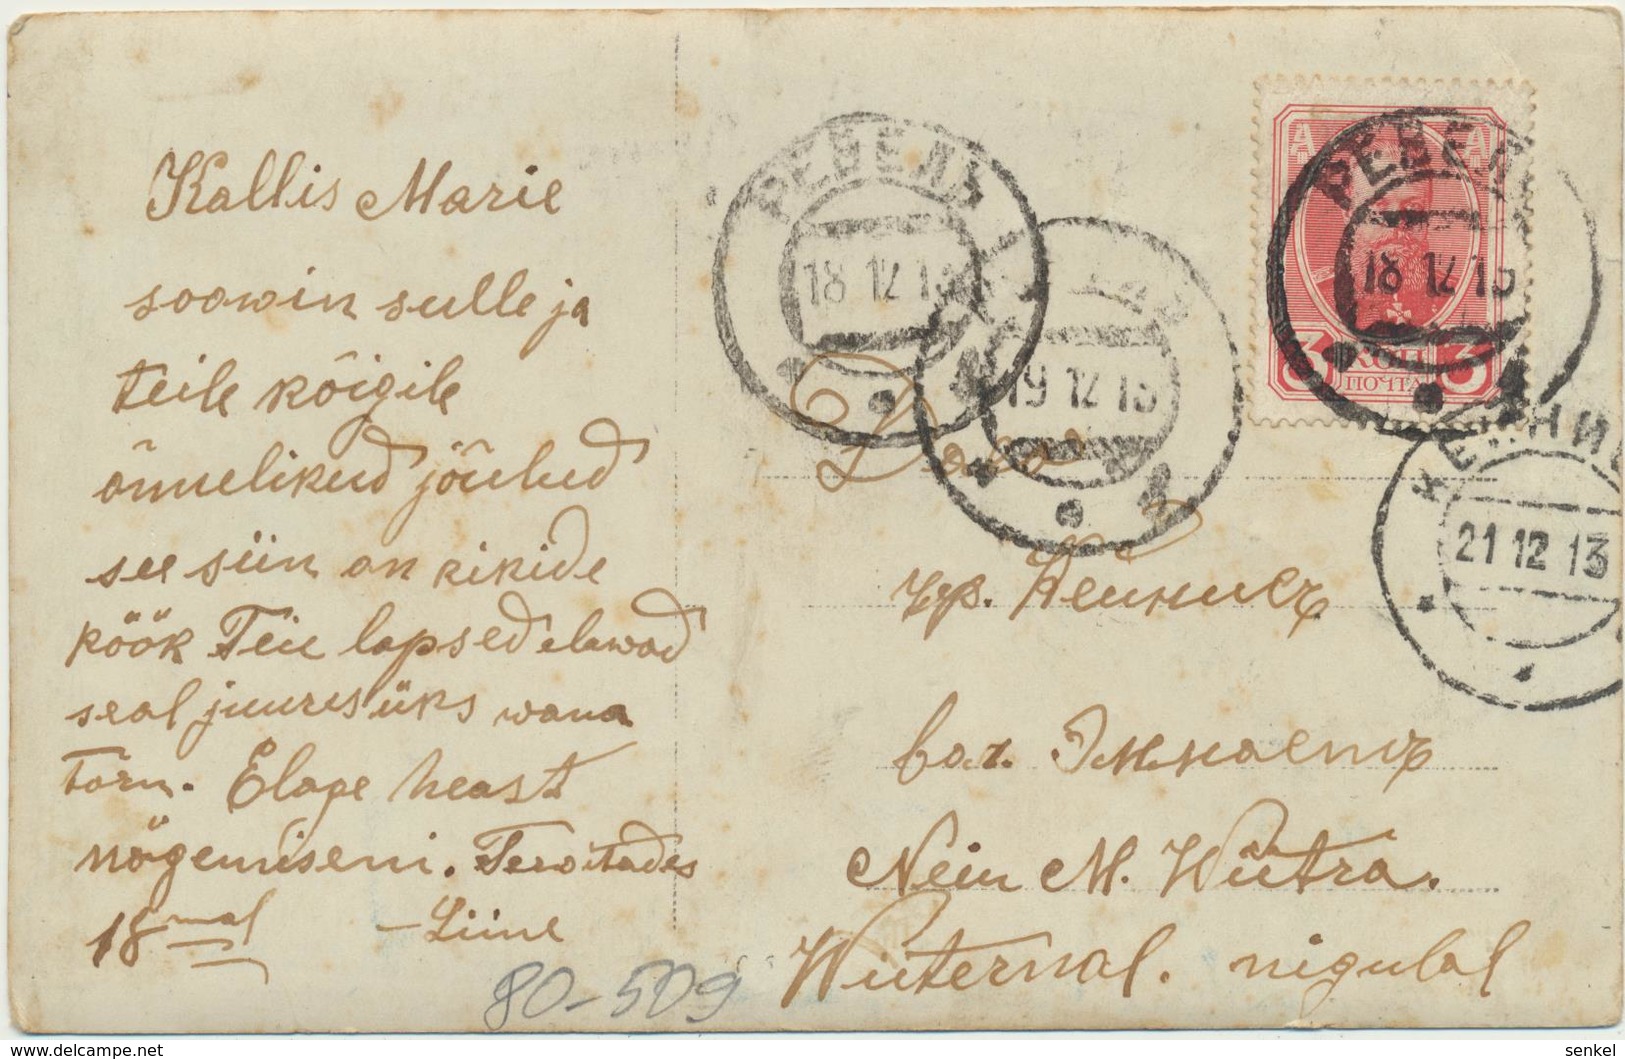 Kallis Marie
soowin sulle ja
teile kõigile
õnnelikud jõulud
see siin on kikide
köök Teie lapsed elawad
seal juures üks wana
torn. Elage heast
nõgemiseni. Terwitades
18mal - Liine
80-509
РЕВЕЛЬ
18 12 13
19 12 13
РЕВЕЛЬ
18 12 13
3 КОП 3
ПОЧТА
21 12 13
чр. Кейнисъ
вол. Эммастъ
Nein M. Wiitra.
Wiiternal. nigulal
delcampe.net
senkel